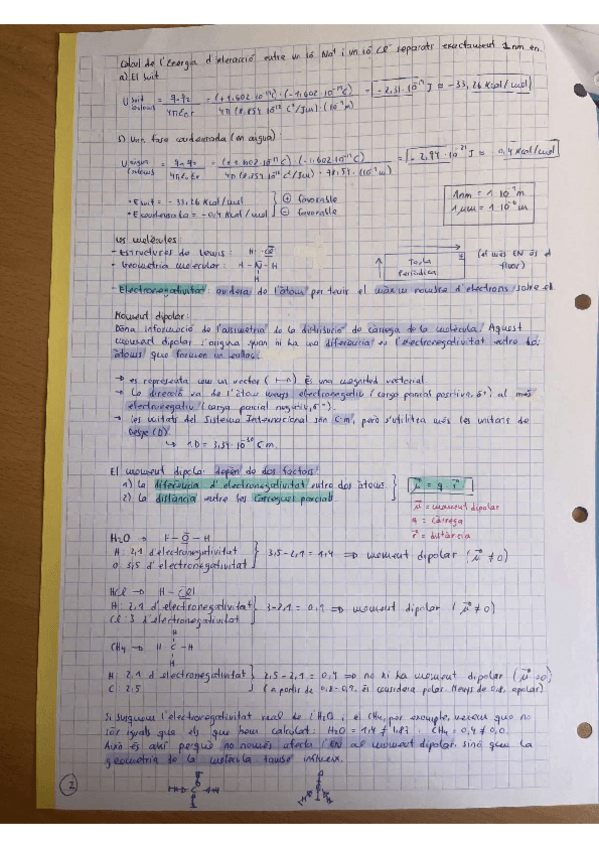 Càlcul de l'Energia d'interacció entre un ió Na⁺ i un ió Cl⁻ separats exactament 1 nm en
a) El buit
U buit = q₁·q₂ / 4πε₀r = (+1.602·10⁻¹⁹C)·(-1.602·10⁻¹⁹C) / 4π(8.854·10⁻¹² C²/Jm)·(10⁻⁹m) = -2,31·10⁻¹⁹ J ≡ -33,26 Kcal/mol
b) Una fase condensada (en aigua):
= -2,94·10⁻²¹ J ≡ -0,4 Kcal/mol
· E buit = -33,26 Kcal/mol ⊕ favorable
· E condensada = -0,4 Kcal/mol ⊖ favorable
1nm = 1·10⁻⁹m
1μm = 1·10⁻⁶m
Les molècules
- Estructures de Lewis: H-Cl
- Geometria molecular: H-N-H
H
Taula Periòdica
(el més EN és el fluor)
- Electronegativitat: de l'àtom per tenir el màxim nombre d'electrons sobre ell
Moment dipolar:
Dóna informació de l'asimetria de la distribució de càrrega de la molècula. Aquest
moment dipolar s'origina quan hi ha una diferència en l'electronegativitat entre dos
àtoms que formen un enllaç.
→ es representa com un vector (⟼) És una magnitud vectorial
→ La direcció va de l'àtom menys electronegatiu (càrrega parcial positiva, δ⁺) al més
electronegatiu (càrrega parcial negativa, δ⁻).
→ les unitats del Sistema Internacional són C·m, però s'utilitza més les unitats de
Debye (D).
↳ 1D = 3,34·10⁻³⁰ C·m.
El moment dipolar depèn de dos factors:
1) la diferència d'electronegativitat entre dos àtoms
2) la distància entre les càrregues parcials
μ⃗ = q · r⃗
μ⃗ = moment dipolar
q = càrrega
r⃗ = distància
H₂O →
H: 2,1 d'electronegativitat
O: 3,5 d'electronegativitat
3,5-2,1 = 1,4 ⇒ moment dipolar (μ⃗ ≠ 0)
HCl → H-Cl
H: 2,1 d'electronegativitat
Cl: 3 d'electronegativitat
3-2,1 = 0,9 ⇒ moment dipolar (μ⃗ ≠ 0)
H
CH₄ → H-C-H
H
H: 2,1 d'electronegativitat
C: 2,5
2,5-2,1 = 0,4 ⇒ no hi ha moment dipolar (μ⃗ = 0)
Si busquem l'electronegativitat real de l'H₂O i el CH₄, per exemple, veurem que no
són iguals que els que hem calculat: H₂O = 1,4 ≠ 1,87 i CH₄ = 0,4 ≠ 0,0.
Això és així perquè no només afecta l'EN al moment dipolar, sinó que la
geometria de la molècula també influeix.
2